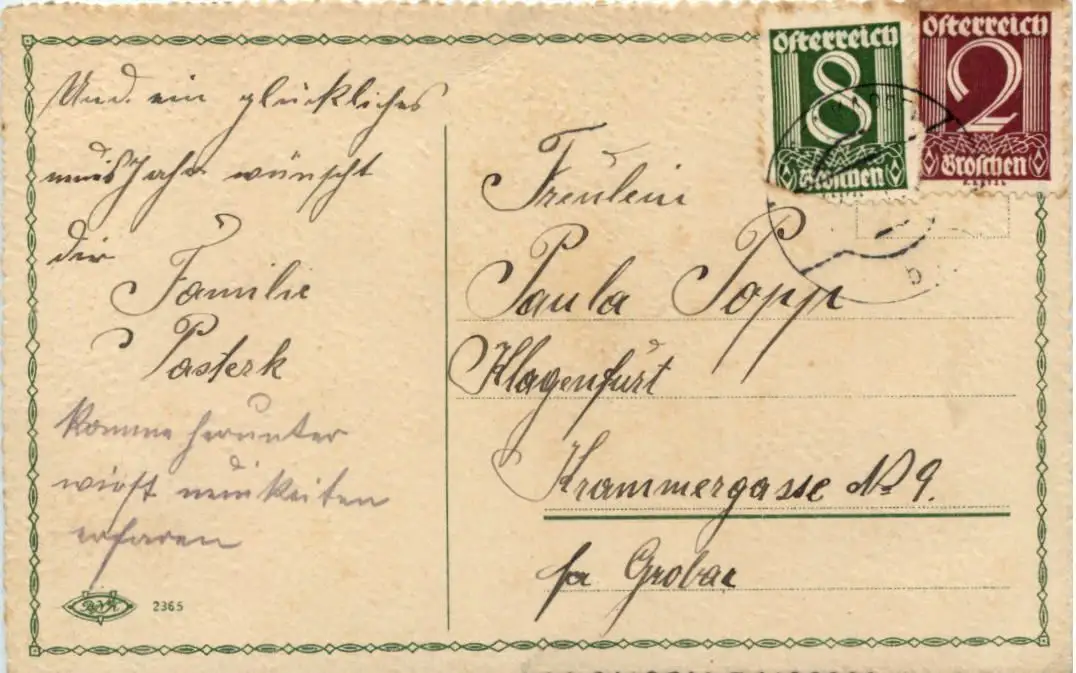 Und ein glückliches
neues Jahr wünscht
dir
Familie
Pasterk
komme herunter
wirst neuikeiten
erfaren
2365
Österreich
8
Groschen
Österreich
2
Groschen
Fräulein
Paula Popp
Klagenfurt
Krammergasse № 9.
Grobar